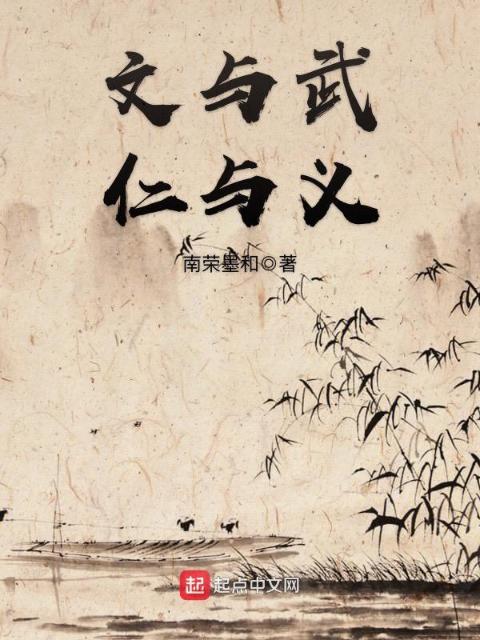 文与武
仁与义
南荣墨和◎著
起 起点中文网